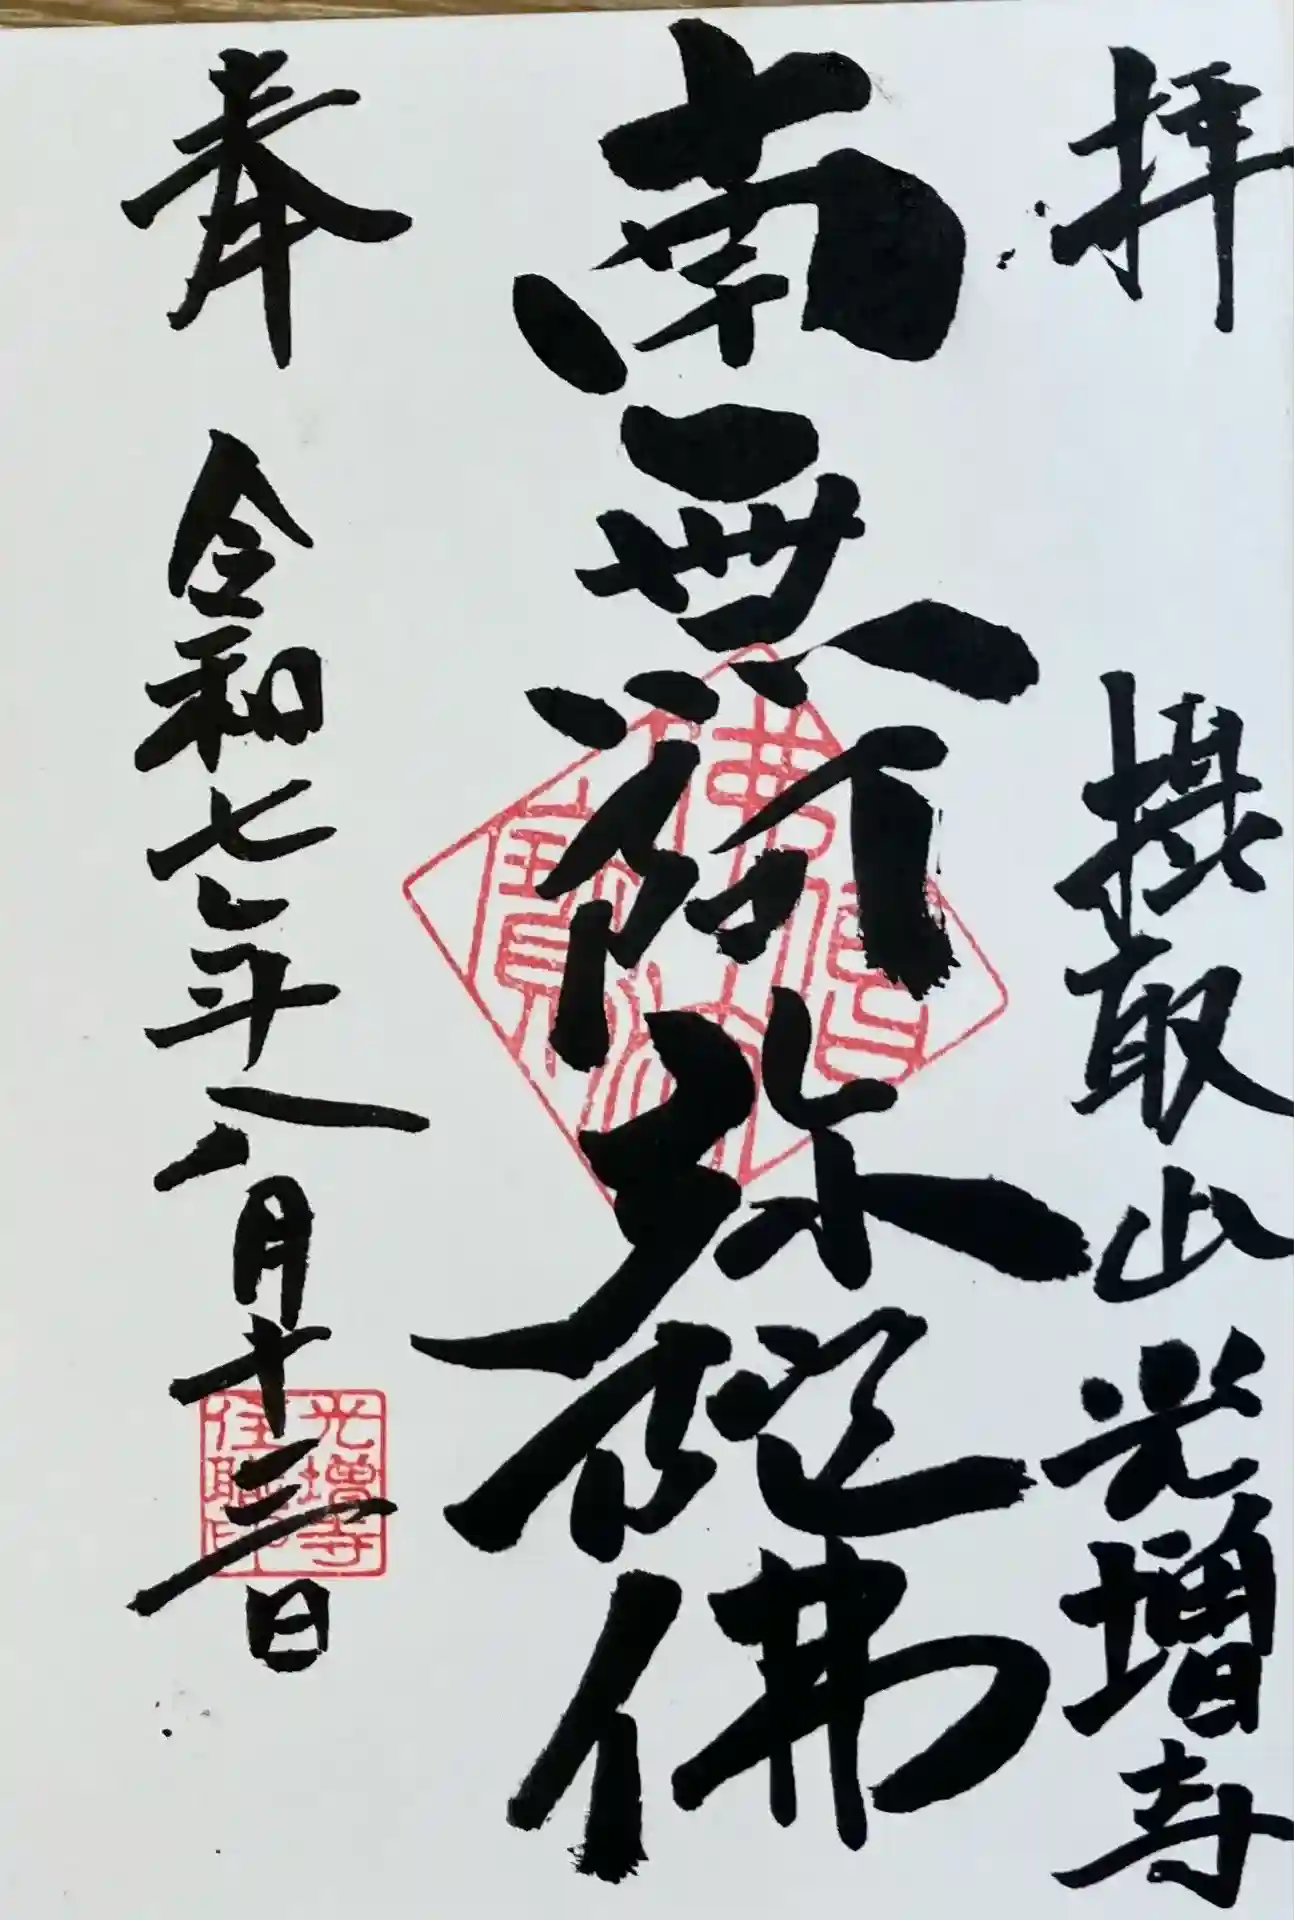 拝
摂取山光増寺
南無阿弥陀佛
奉
令和七年八月十三日
佛法僧寶
光増寺
住職印